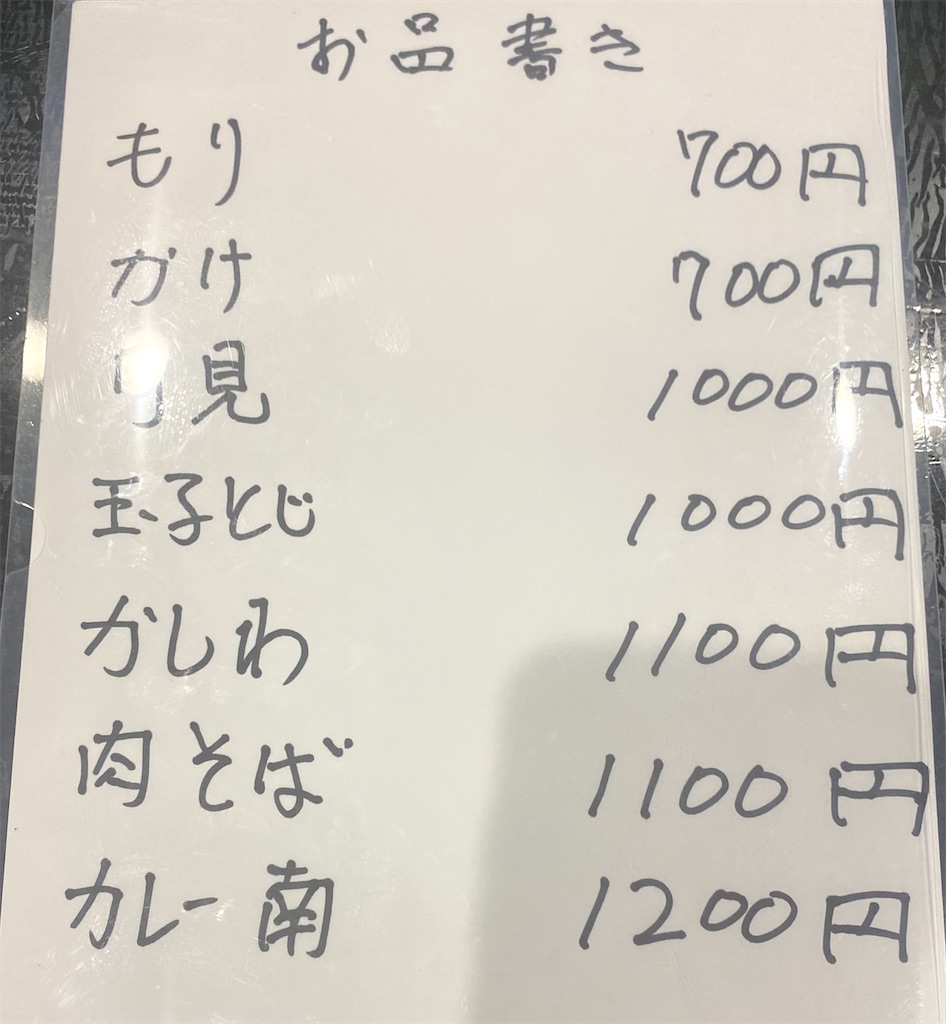 お品書き
もり 700円
かけ 700円
月見 1000円
玉子とじ 1000円
かしわ 1100円
肉そば 1100円
カレー南 1200円